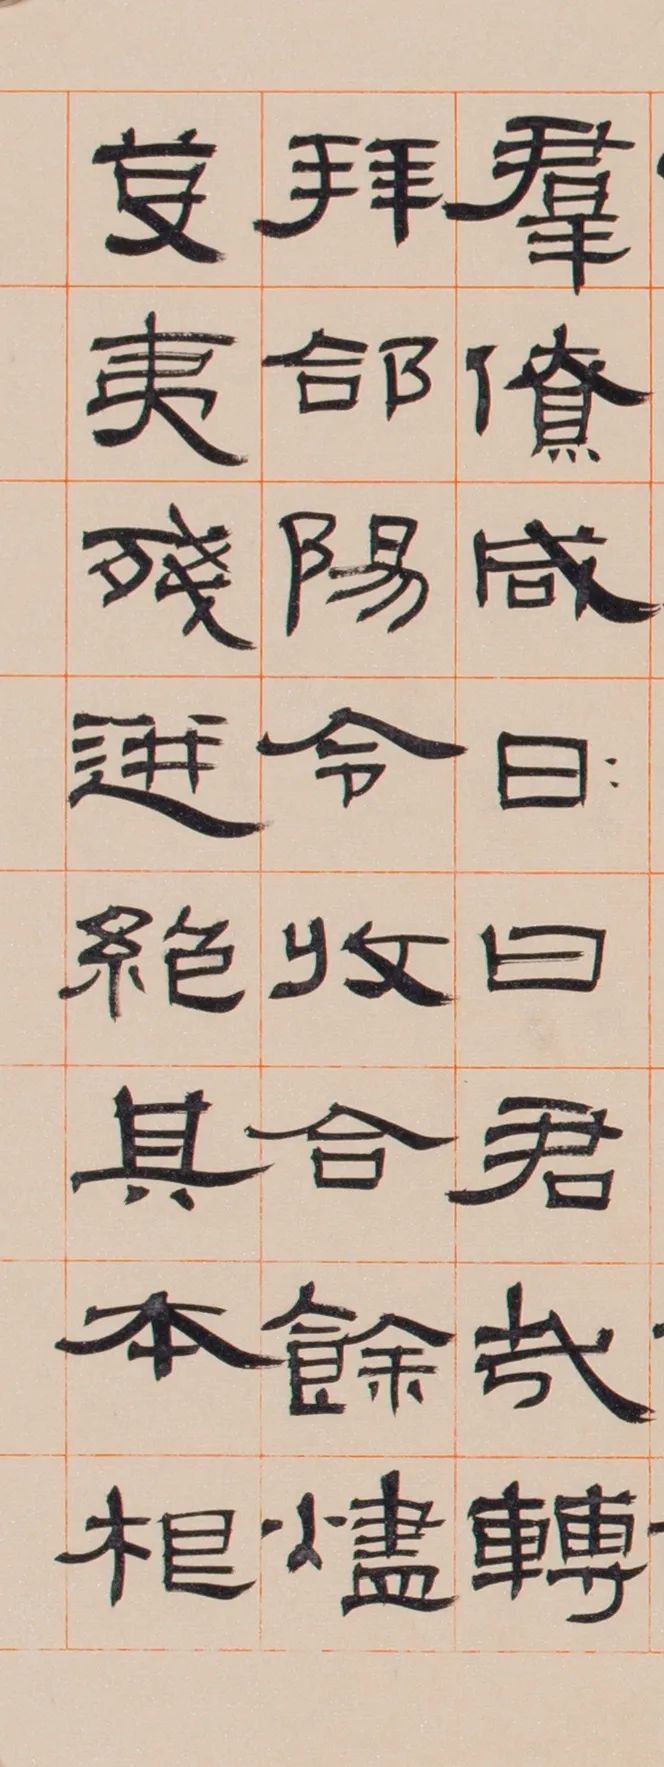 羣僚咸曰:曰君哉轉
拜郃陽令收合餘燼
芟夷殘迸絕其本根